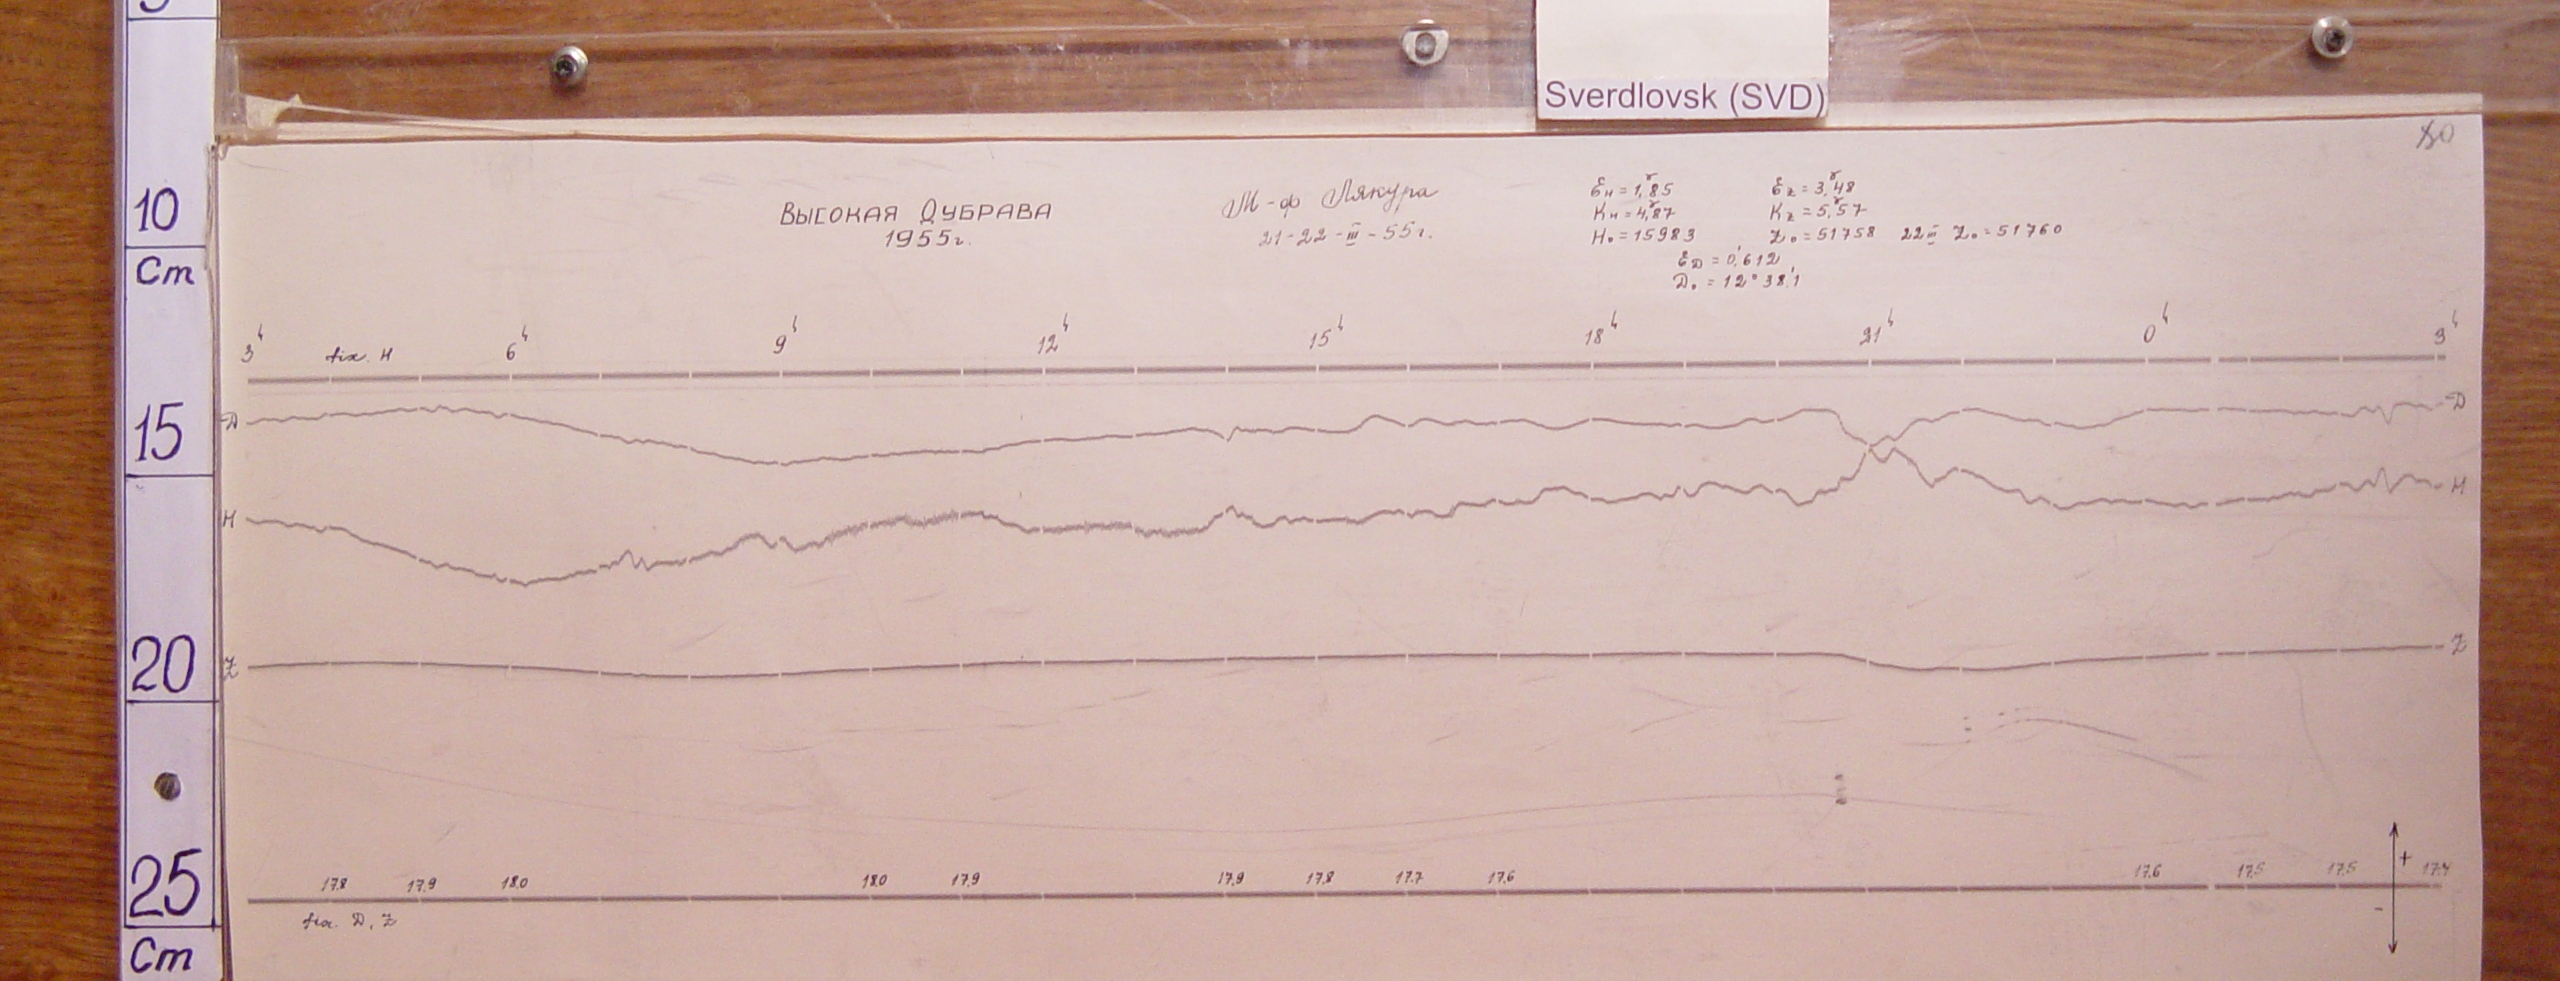 Sverdlovsk (SVD)
80
Высокая Дубрава
1955г.
М-ф Лякура
21-22-III-55г.
Ɛн = 1,85γ
Kн = 4,87γ
H₀ = 15983
Ɛz = 3,48γ
Kz = 5,57γ
Z₀ = 51758 22 III Z₀ = 51760
ƐD = 0,'612
D₀ = 12°38,'1
3ч fix. H 6ч 9ч 12ч 15ч 18ч 21ч 0ч 3ч
D D
H H
Z Z
17.8 17.9 18.0 18.0 17.9 17.9 17.8 17.7 17.6 17.6 17.5 17.5 17.4
fix. D, Z
+
-
10
Cm
15
20
25
Cm